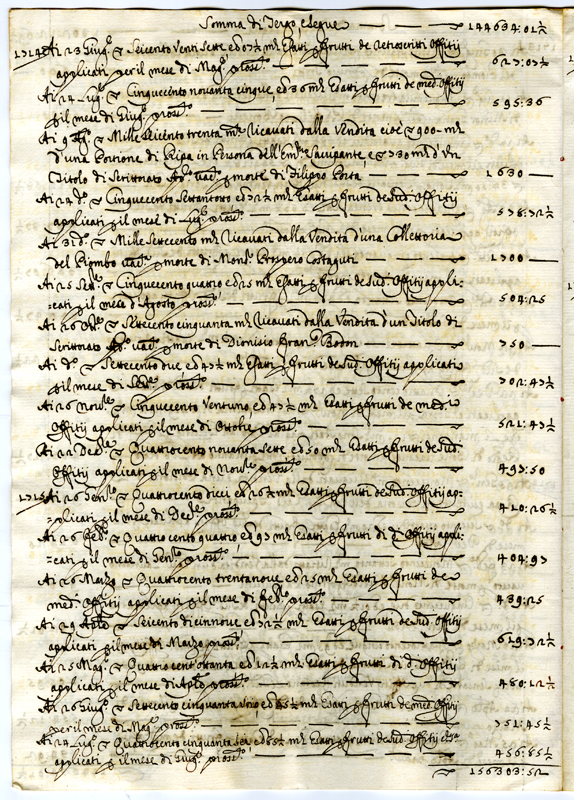 Somma di tergo, e segue — 144634:01½
1714 Ai 23 Giug.º Seicento Venti Sette ed 07½ mƚ Esatti frutti de retroscritti Offitij
applicati per il mese di Mag.º pross.º — 627:07½
Ai 24 Lug.º Cinquecento novanta cinque, ed 36 mƚ Esatti frutti de med. Offitij
p il mese di Giug.º pross.º — 595:36
Mille seicento trenta mƚ Ricavati dalla Vendita cioè 900 mƚ
d'una Portione di Ripa in Persona dell' e 730 mƚ d'Un
Titolo di Scrittorato vac.º p morte di Filippo Porta — 1630
Ai 24 d.º Cinquecento Settantotto ed 72½ mƚ Esatti p frutti de Sud. Offitij
applicati p il mese di Lug.º pross.º — 578:72½
Ai 31 d.º Mille Settecento mƚ Ricavati dalla Vendita d'una Collettoria
del Piombo vac.ª p morte di Mons.r Prospero Costaguti — 1700
Ai 25 Sett.e Cinquecento quattro ed 25 mƚ Esatti p frutti de Sud. Offitij appli-
=cati p il mese d'Agosto pross.º — 504:25
Ai 26 Ott.e Settecento cinquanta mƚ Ricavati dalla Vendita d'un Titolo di
Scrittorato vac.º p morte di Dionisio Fran.º Bodon — 750
Ai d.º Settecento due ed 47½ mƚ Esatti p frutti de Sud. Offitij applicati
p il mese di pross.º — 702:47½
Ai 26 Nov.e Cinquecento Ventuno ed 43½ mƚ Esatti p frutti de med.i
Offitij applicati p il mese di Ottobre pross.º — 521:43½
Ai 22 Dec.e Quattrocento novanta sette ed 50 mƚ Esatti p frutti de Sud.
Offitij applicati p il mese di Nov.e pross.º — 497:50
1715 Ai 26 Gen.º Quattrocento dieci ed 26½ mƚ Esatti p frutti de Sud. Offitij ap-
=plicati p il mese di Dec.e pross.º — 410:26½
Ai 26 Feb.º Quattro cento quattro ed 97 mƚ Esatti p frutti di d. Offitij appli-
=cati p il mese di Gen.º pross.º — 404:97
Ai 26 Marzo Quattrocento trentanove ed 25 mƚ Esatti p frutti de
med. Offitij applicati p il mese di Feb.º pross.º — 439:25
Ai 29 Aple Seicento diecinnove ed 72½ mƚ Esatti p frutti de Sud. Offitij
applicati p il mese di Marzo pross.º — 619:72½
Ai 25 Mag.º Quattro cent'ottanta ed 12½ mƚ Esatti p frutti di d. Offitij
applicati p il mese di Aple pross.º — 480:12½
Ai 26 Giug.º Settecento cinquanta Uno ed 45½ mƚ Esatti p frutti de med. Offitij
per il mese di Mag.º pross.º — 751:45½
Ai 24 Lug.º Quattrocento cinquanta sei ed 65½ mƚ Esatti p frutti de Sud. Offitij
applicati p il mese di Giug.º pross.º — 456:65½
156303:52